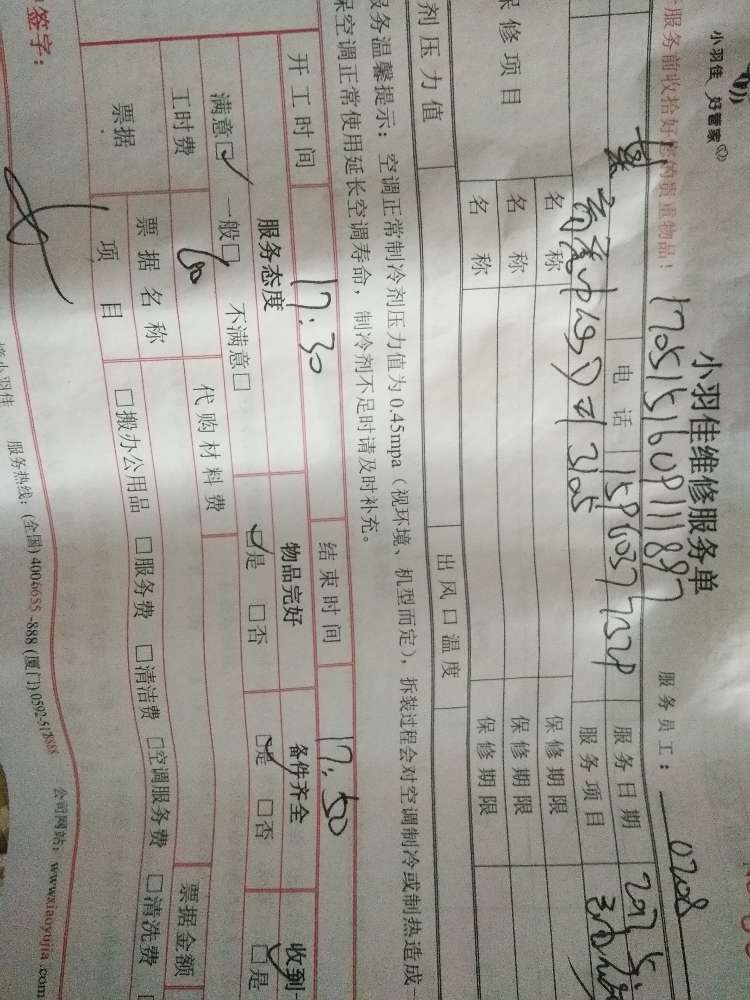 小羽佳 好管家
小羽佳维修服务单
服务前收拾好您的贵重物品!
服务员工: 0208
电话
服务日期
服务项目
保修项目
名称
保修期限
名称
保修期限
名称
保修期限
剂压力值
出风口温度
服务温馨提示: 空调正常制冷剂压力值为0.45mpa (视环境、机型而定), 拆装过程会对空调制冷或制热造成一
保空调正常使用延长空调寿命, 制冷剂不足时请及时补充。
开工时间 17:30 结束时间 17:50
服务态度 物品完好 备件齐全 收到
满意☑ 一般□ 不满意□ ☑是 □否 ☑是 □否 □是
工时费 60 代购材料费
票据 票据名称 票据金额
项目 □搬办公用品 □服务费 □清洁费 □空调服务费 □清洗费
签字:
服务热线: (全国) 4006655-888 (厦门)
公司网站: www.xiaoyujia.com